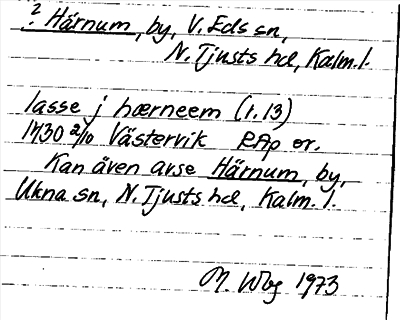 ? Härnum, by, V. Eds sn,
N. Tjusts hd, Kalm. l.
lasse j hærneem (r. 13)
1430 2/10 Västervik RAp or.
Kan även avse Härnum, by,
Ukna sn, N. Tjusts hd, Kalm. l.
M. Wbg 1973